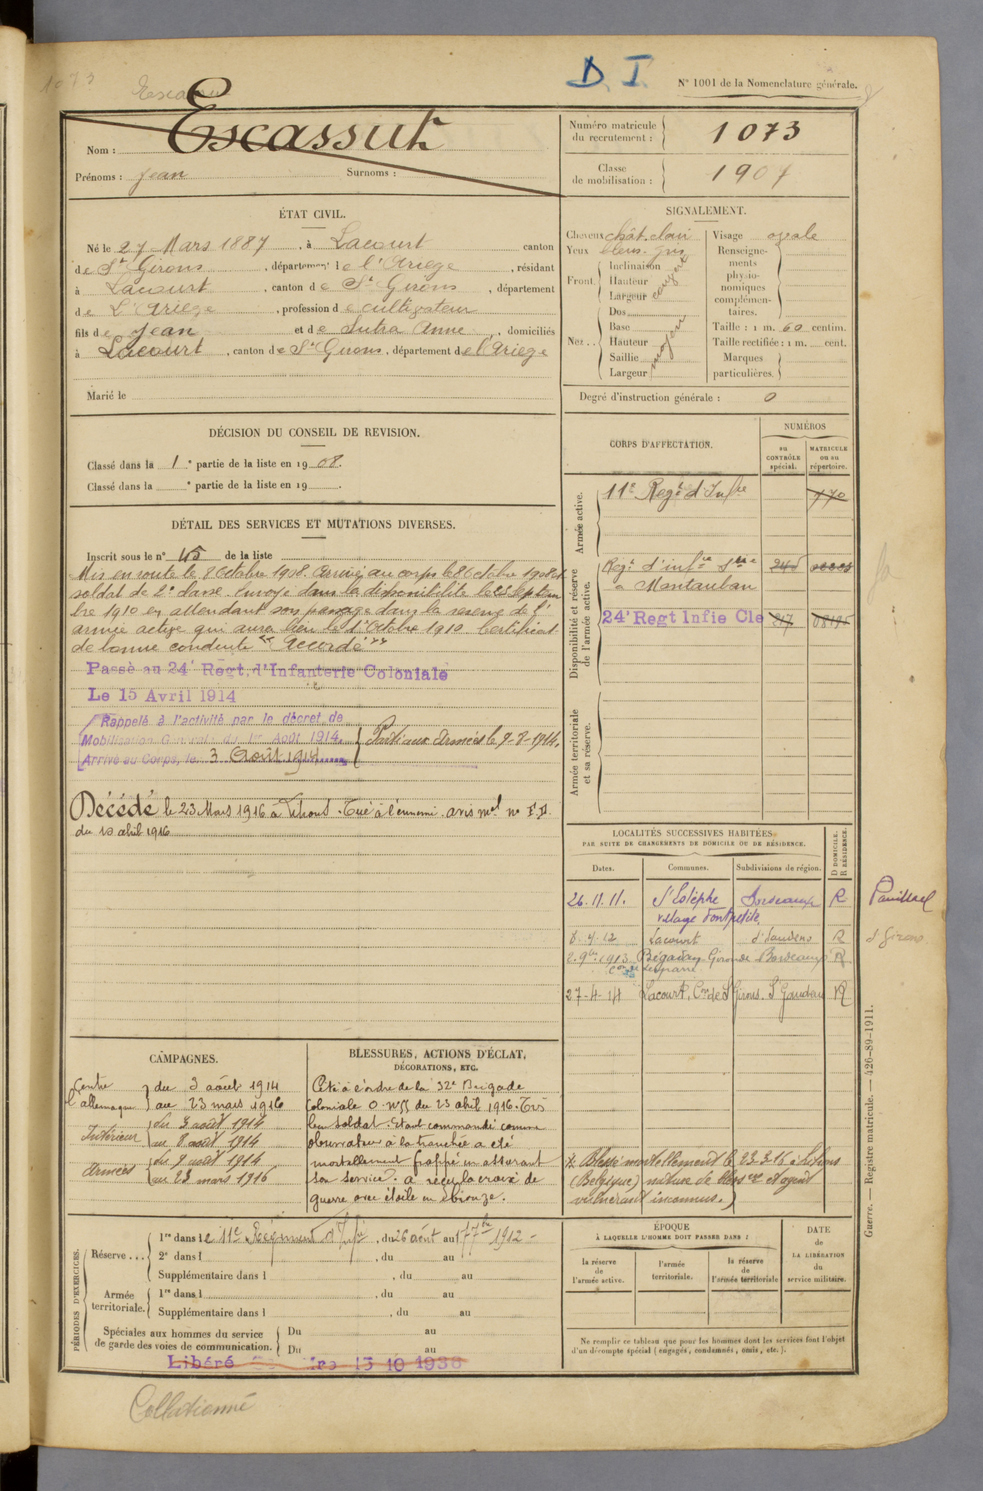 1073
D. I.
N° 1001 de la Nomenclature générale.
Nom : Escassut
Prénoms : Jean Surnoms :
Numéro matricule du recrutement : 1073
Classe de mobilisation : 1907
ÉTAT CIVIL.
Né le 27 Mars 1887, à Lacourt canton
de St Girons, département de l'Ariège, résidant
à Lacourt, canton de St Girons, département
de L'Ariège, profession de cultivateur
fils de Jean et de Sutra Anne, domiciliés
à Lacourt, canton de St Girons, département de l'Ariège
Marié le
SIGNALEMENT.
Cheveux chât. clair Visage ovale
Yeux bleus-gris
Front. Inclinaison
Hauteur
Largeur
Dos
Nez.. Base
Hauteur moyen
Saillie
Largeur
Renseigne-
ments
physio-
nomiques
complémen-
taires.
Taille : 1 m. 60 centim.
Taille rectifiée : 1 m. cent.
Marques
particulières.
Degré d'instruction générale : 0
DÉCISION DU CONSEIL DE REVISION.
Classé dans la 1e partie de la liste en 1908.
Classé dans la e partie de la liste en 19 .
DÉTAIL DES SERVICES ET MUTATIONS DIVERSES.
Inscrit sous le n° 45 de la liste
Mis en route le 8 Octobre 1908. Arrivé au corps le 8 Octobre 1908 et
soldat de 2e classe. Envoyé dans la disponibilité le 25 Septem
bre 1910 en attendant son passage dans la réserve de l'
armée active qui aura lieu le 1er Octobre 1910 Certificat
de bonne conduite "Accordé"
Passé au 24e Regt. d'Infanterie Coloniale
Le 15 Avril 1914
Rappelé à l'activité par le décret de
Mobilisation Générale du 1er Août 1914.
Arrivé au Corps, le 3 Août 1914
Parti aux Armées le 7-8-1914.
Décédé le 23 Mars 1916 à Lihons. Tué à l'ennemi. avis mel n°
du 10 abril 1916
CORPS D'AFFECTATION.
NUMÉROS
au CONTRÔLE spécial.
MATRICULE ou au répertoire.
Armée active.
11e Regt d'Infie
770
Disponibilité et réserve de l'armée active.
Regt d'infie
à Montauban
24e Regt Infie Cle 317
Armée territoriale et sa réserve.
LOCALITÉS SUCCESSIVES HABITÉES
PAR SUITE DE CHANGEMENTS DE DOMICILE OU DE RÉSIDENCE.
Dates. Communes. Subdivisions de région. D DOMICILE. R RÉSIDENCE.
26.11.11. St Estèphe Bordeaux R Pauillac
village
8.4.12 Lacourt St Gaudens R St Girons
2.9bre 1913 Bégadan Gironde Bordeaux R
27-4-14 Lacourt, Con de St Girons. St Gaudens R
CAMPAGNES.
Contre l'allemagne du 3 août 1914
au 23 mars 1916
Intérieur du 3 août 1914
au 8 août 1914
Armées du 9 août 1914
au 23 mars 1916
BLESSURES, ACTIONS D'ÉCLAT,
DÉCORATIONS, ETC.
Cité à l'ordre de la 32e Brigade
Coloniale O n°55 du 23 abril 1916. Très
bon soldat. Etant commandé comme
observateur à la tranchée a été
mortellement frappé en assurant
son service. a reçu la croix de
guerre avec étoile en bronze.
* Blessé mortellement le 23.3.16 à Lihons
(Belgique) nature de bless re et agent
vulnérant inconnus.)
PÉRIODES D'EXERCICES.
Réserve... 1re dans le 11e Régiment d'Infie, du 26 août au 17 7bre 1912
2e dans l , du au
Supplémentaire dans l , du au
Armée territoriale. 1re dans l , du au
Supplémentaire dans l , du au
Spéciales aux hommes du service
de garde des voies de communication. Du au
Du au
Libéré 15 10 1936
ÉPOQUE
À LAQUELLE L'HOMME DOIT PASSER DANS :
la réserve de l'armée active.
l'armée territoriale.
la réserve de l'armée territoriale
DATE
de
LA LIBÉRATION
du
service militaire.
Ne remplir ce tableau que pour les hommes dont les services font l'objet
d'un décompte spécial (engagés, condamnés, omis, etc.).
Guerre. — Registre matricule. — 426-89-1911.
Collationné